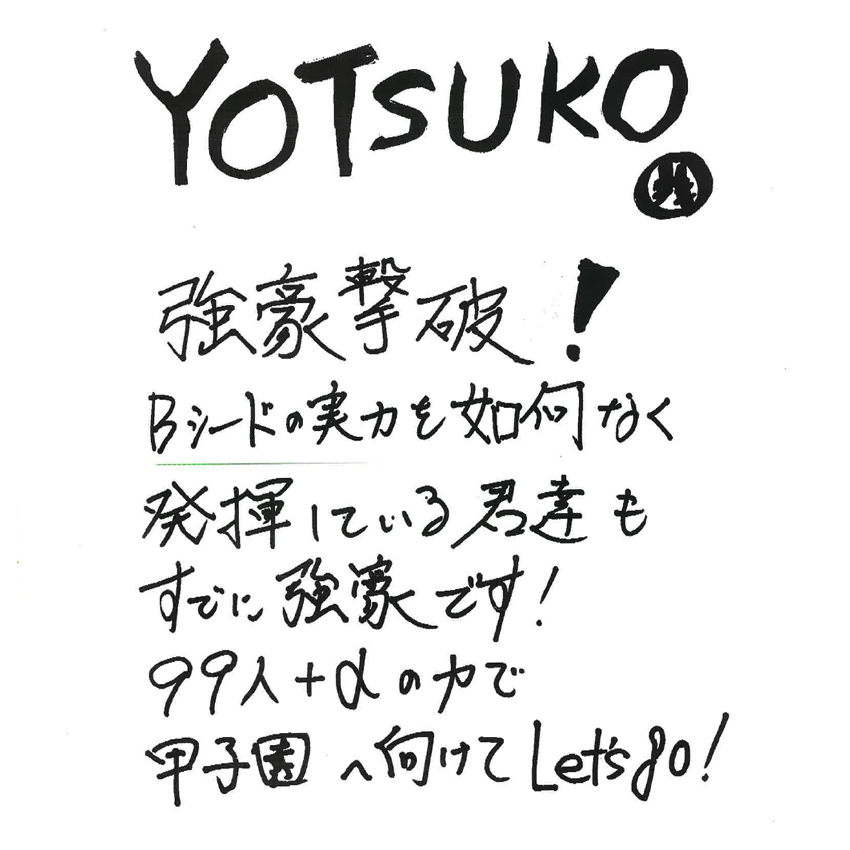 YOTSUKO
強豪撃破!
Bシードの実力を如何なく
発揮している君達も
すでに強豪です!
99人+αの力で
甲子園へ向けてLet's go!